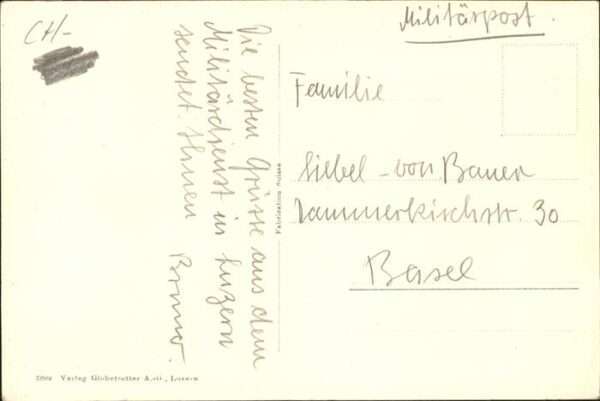 CH-
Militärpost.
Die besten Grüsse aus dem
Militärdienst in Luzern
sendet Ihnen Bruno.
Familie
Siebel-von Bauer
Dammerkirchstr. 30
Basel
Fabrication Suisse
Verlag Globetrotter Luzern